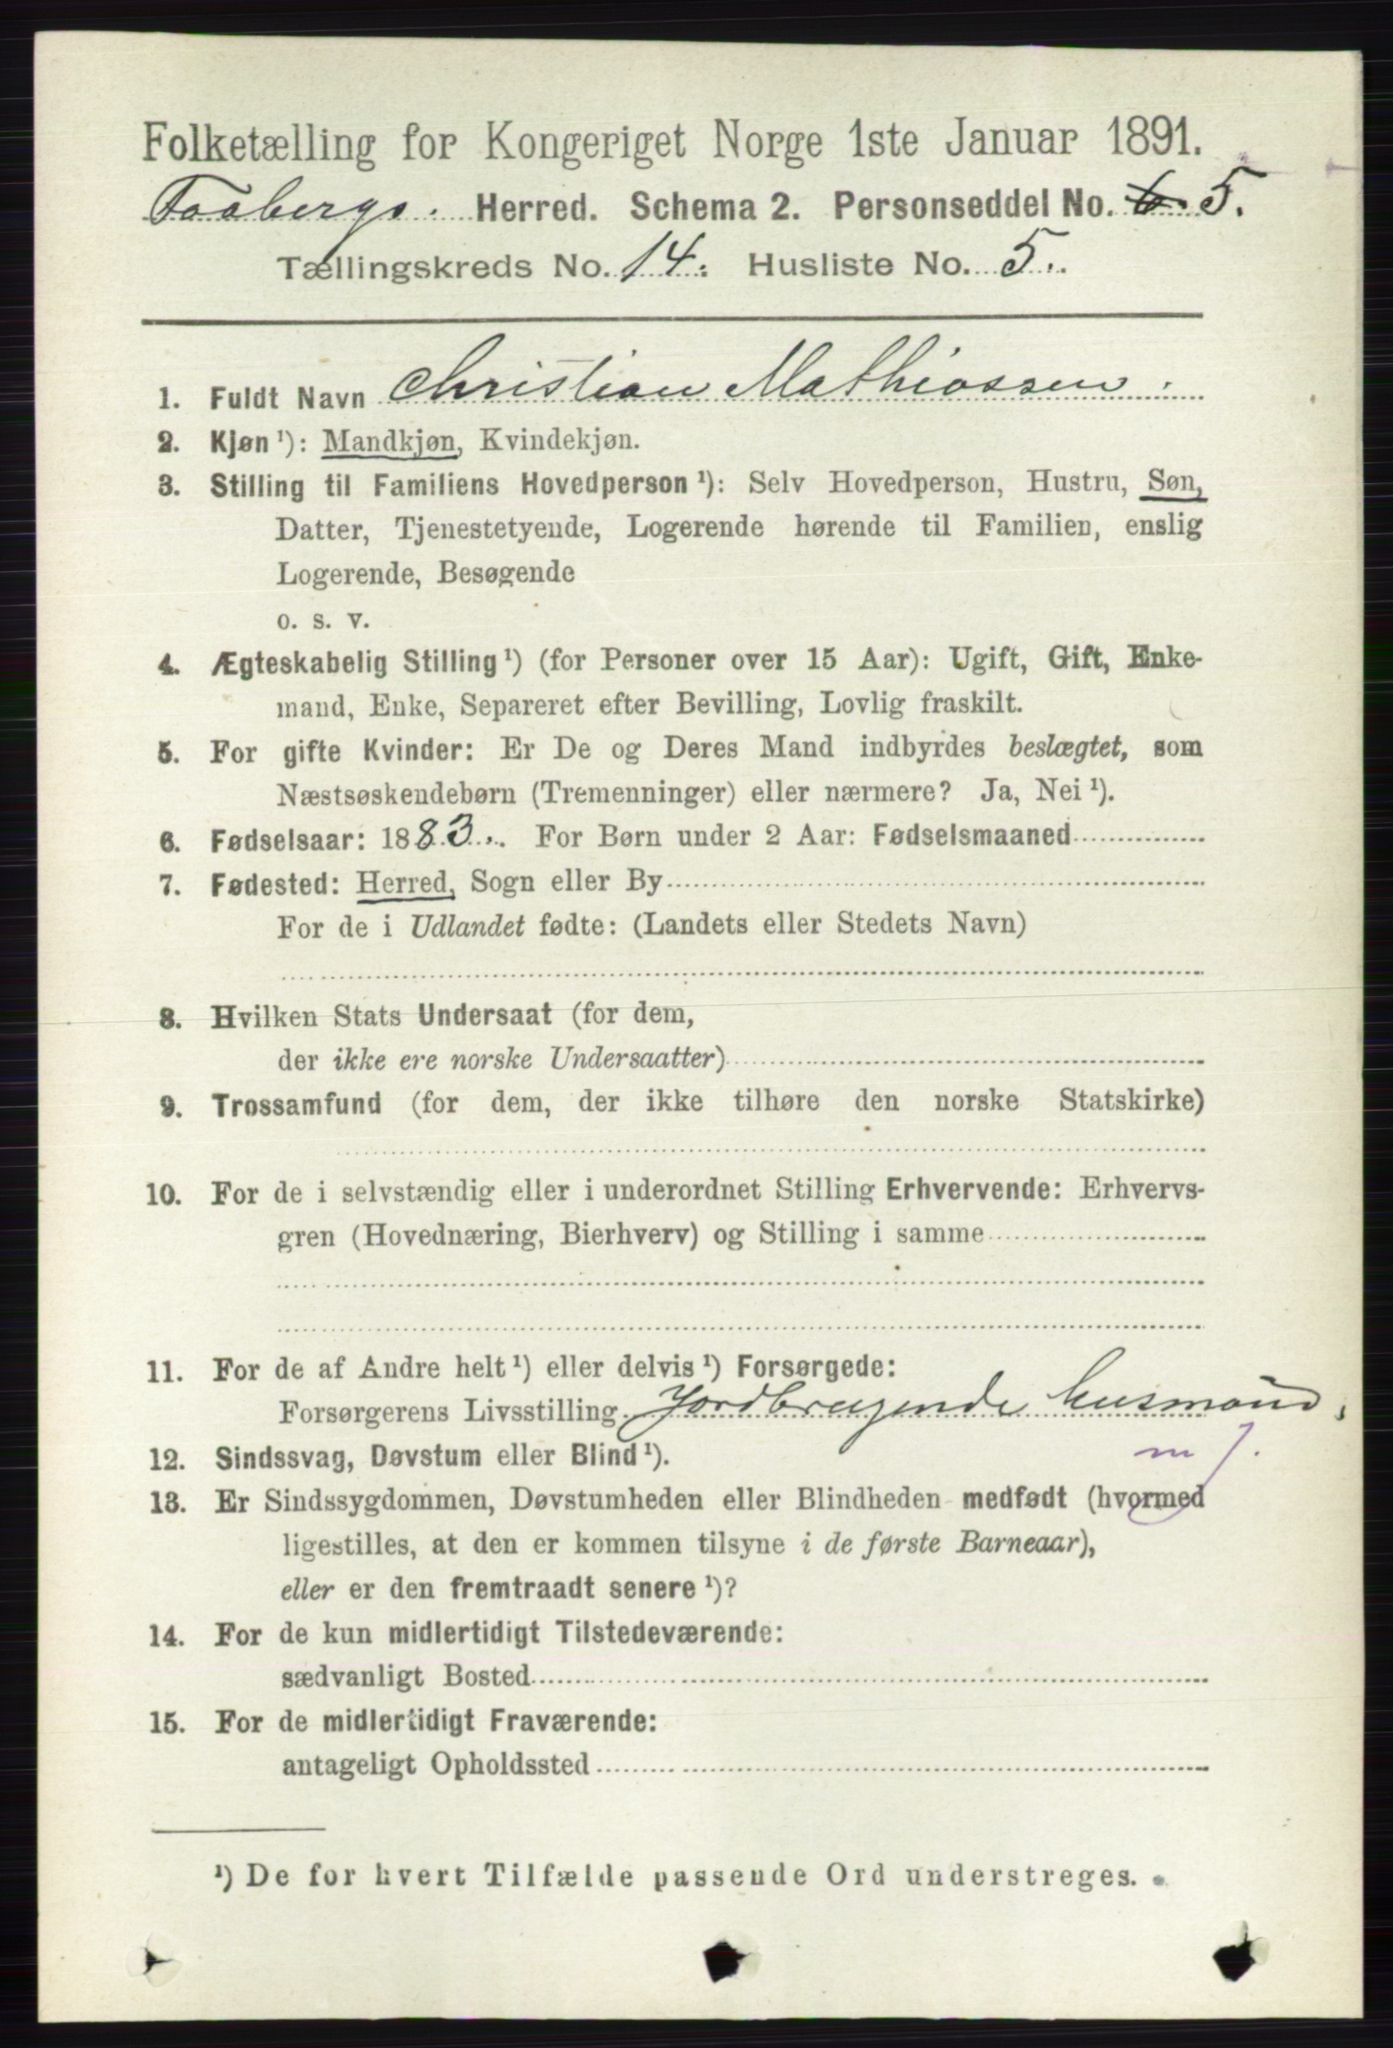 Folketælling for Kongeriget Norge 1ste Januar 1891.
Faabergs. Herred. Schema 2. Personseddel No. 6. 5.
Tællingskreds No. 14. Husliste No. 5.
1. Fuldt Navn Christian Mathiassen.
2. Kjøn¹): Mandkjøn, Kvindekjøn.
3. Stilling til Familiens Hovedperson¹): Selv Hovedperson, Hustru, Søn,
Datter, Tjenestetyende, Logerende hørende til Familien, enslig
Logerende, Besøgende
o. s. v.
4. Ægteskabelig Stilling¹) (for Personer over 15 Aar): Ugift, Gift, Enke-
mand, Enke, Separeret efter Bevilling, Lovlig fraskilt.
5. For gifte Kvinder: Er De og Deres Mand indbyrdes beslægtet, som
Næstsøskendebørn (Tremenninger) eller nærmere? Ja, Nei¹).
6. Fødselsaar: 1883. For Børn under 2 Aar: Fødselsmaaned
7. Fødested: Herred, Sogn eller By
For de i Udlandet fødte: (Landets eller Stedets Navn)
8. Hvilken Stats Undersaat (for dem,
der ikke ere norske Undersaatter)
9. Trossamfund (for dem, der ikke tilhøre den norske Statskirke)
10. For de i selvstændig eller i underordnet Stilling Erhvervende: Erhvervs-
gren (Hovednæring, Bierhverv) og Stilling i samme
11. For de af Andre helt¹) eller delvis¹) Forsørgede:
Forsørgerens Livsstilling Jordbrugende Husmand,
m J.
12. Sindssvag, Døvstum eller Blind¹).
13. Er Sindssygdommen, Døvstumheden eller Blindheden medfødt (hvormed
ligestilles, at den er kommen tilsyne i de første Barneaar),
eller er den fremtraadt senere¹)?
14. For de kun midlertidigt Tilstedeværende:
sædvanligt Bosted
15. For de midlertidigt Fraværende:
antageligt Opholdssted
¹) De for hvert Tilfælde passende Ord understreges.